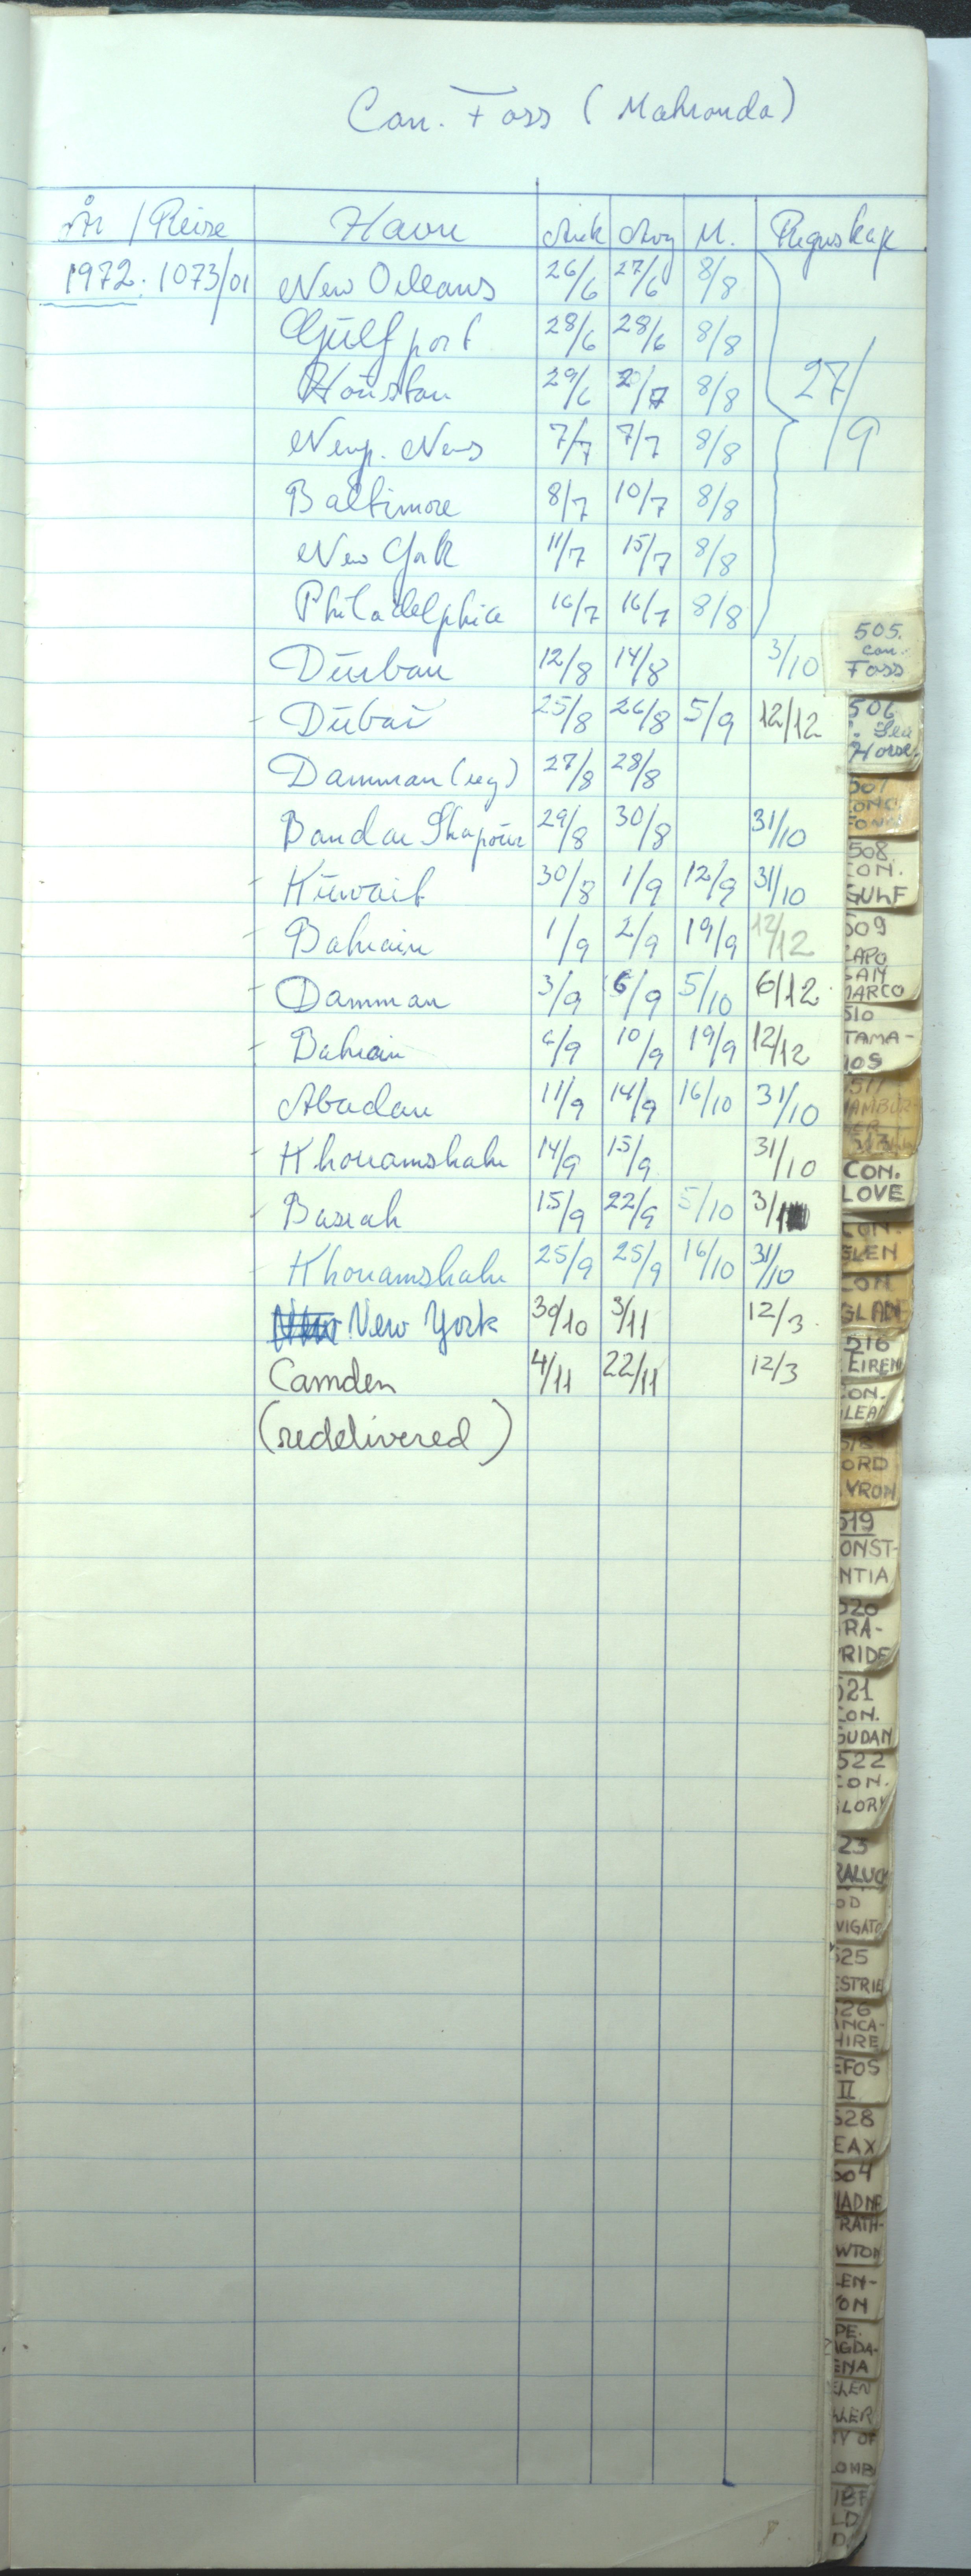 Con. Foss (Mahronda)
År / Reise Havn Ank Avg M. Regnskap
1972. 1073/01 New Orleans 26/6 27/6 8/8
Gulfport 28/6 28/6 8/8
Houston 29/6 2/7 8/8 27/9
Newp. News 7/7 7/7 8/8
Baltimore 8/7 10/7 8/8
New York 11/7 15/7 8/8
Philadelphia 16/7 16/7 8/8
Durban 12/8 14/8 3/10
Dubai 25/8 26/8 5/9 12/12
Damman 27/8 28/8
Bandar Shapour 29/8 30/8 31/10
Kuwait 30/8 1/9 12/9 31/10
Bahrain 1/9 2/9 19/9 12/12
Damman 3/9 6/9 5/10 6/12
Bahrain 6/9 10/9 19/9 12/12
Abadan 11/9 14/9 16/10 31/10
Khoramshahr 14/9 15/9 31/10
Basrah 15/9 22/9 5/10 3/1
Khoramshahr 25/9 25/9 16/10 31/10
New York 30/10 3/11 12/3
Camden 4/11 22/11 12/3
(redelivered)
505.
Con.
Foss
506
Sea
Horse.
508
CON.
GULF
509
CAPO
SAN
MARCO
510
TAMA-
CON.
LOVE
CON.
GLEN
CON
516
EIREN
CON.
519
ONST-
NTIA
520
RA-
RIDE
521
CON.
SUDAN
522
CON.
LORY
23
RALUCK
VIGATO
525
ESTRIE
526
ANCA-
HIRE
EFOS
II
528
EAX
504
IADNE
RATH-
WTON
LEN-
ON
PE.
AGDA-
ENA
ELEN
LLER
Y OF
OMB